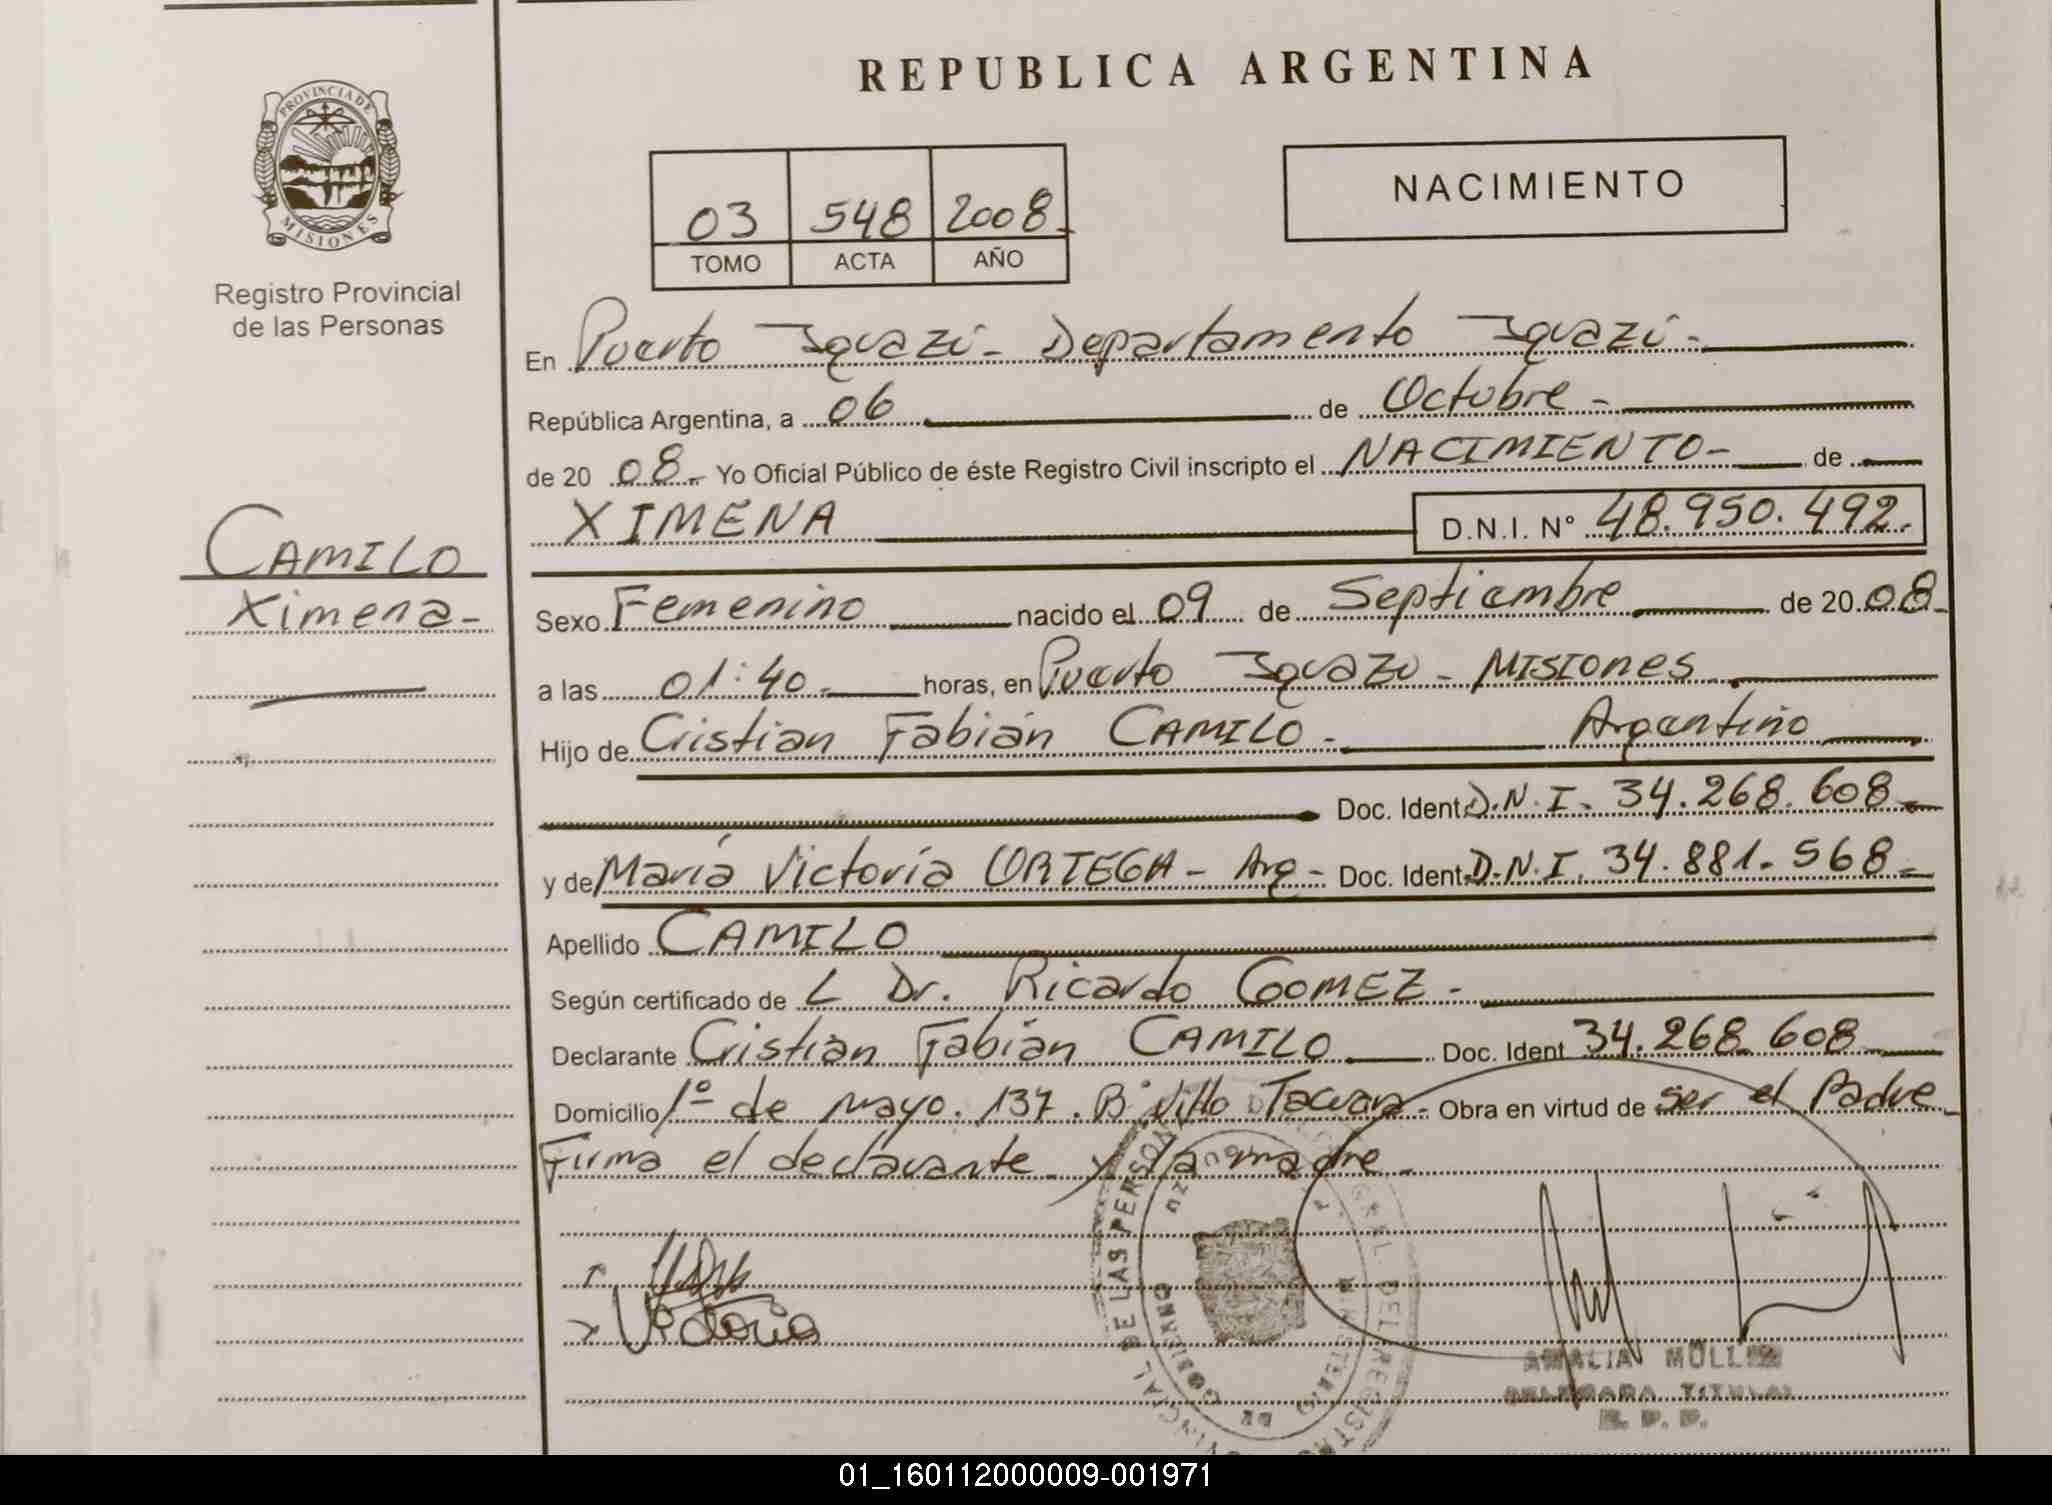 REPUBLICA ARGENTINA
PROVINCIA DE
MISIONES
Registro Provincial
de las Personas
CAMILO
Ximena-
03 548 2008-
TOMO ACTA AÑO
NACIMIENTO
En Puerto Iguazú- Departamento Iguazú-
República Argentina, a 06 de Octubre-
de 20 08- Yo Oficial Público de éste Registro Civil inscripto el NACIMIENTO- de
XIMENA D.N.I. N° 48.950.492.
Sexo Femenino nacido el 09 de Septiembre de 20 08-
a las 01:40- horas, en Puerto Iguazú- MISIONES
Hijo de Cristian Fabián CAMILO- Argentino
Doc. Ident. D.N.I. 34.268.608-
y de María Victoria ORTEGA- Arg- Doc. Ident. D.N.I. 34.881.568-
Apellido CAMILO
Según certificado de L Dr. Ricardo GOMEZ-
Declarante Cristian Fabián CAMILO Doc. Ident 34.268.608
Domicilio 1º de Mayo. 137. B° Villa Obra en virtud de ser el Padre-
Firma el declarante y la madre-
Victoria
DE LAS PERSONAS
GOBIERNO
DE
MINISTERIO
AMALIA
DELEGADA TITULAR
R. P. P.
01_160112000009-001971